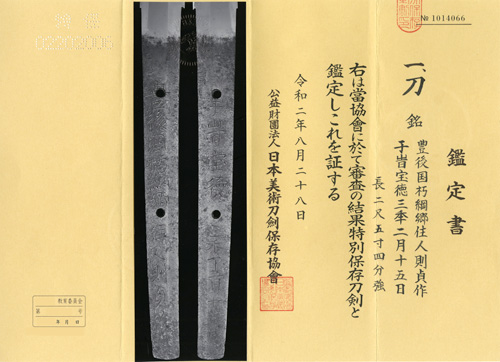 № 1014066
鑑定書
一、刀 銘 豊後国朽網郷住人則貞作
于旹宝徳三年二月十五日
長二尺五寸四分強
右は當協會に於て審査の結果特別保存刀劍と
鑑定しこれを証する
令和二年八月二十八日
公益財團法人 日本美術刀劍保存協會
02202006
教育委員会
第 号
年 月 日